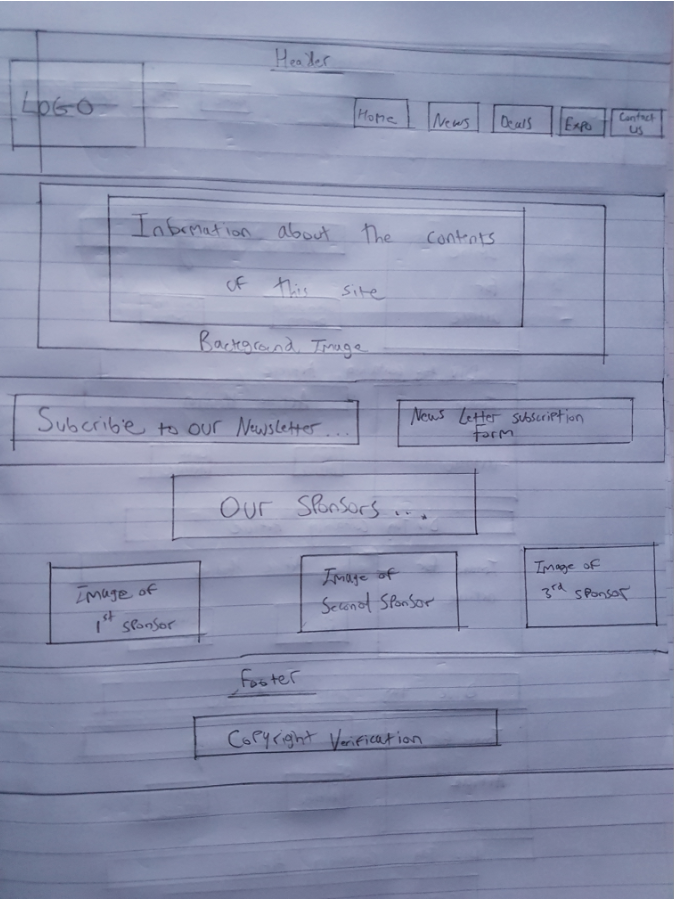 Header
LOGO
Home
News
Deals
Expo
Contact
Us
Information about the contents
of this site
Background Image
Subcribe to our Newsletter...
News Letter subscription
form
Our Sponsors...
Image of
1st sponsor
Image of
Second Sponsor
Image of
3rd sponsor
Footer
Copyright Verification